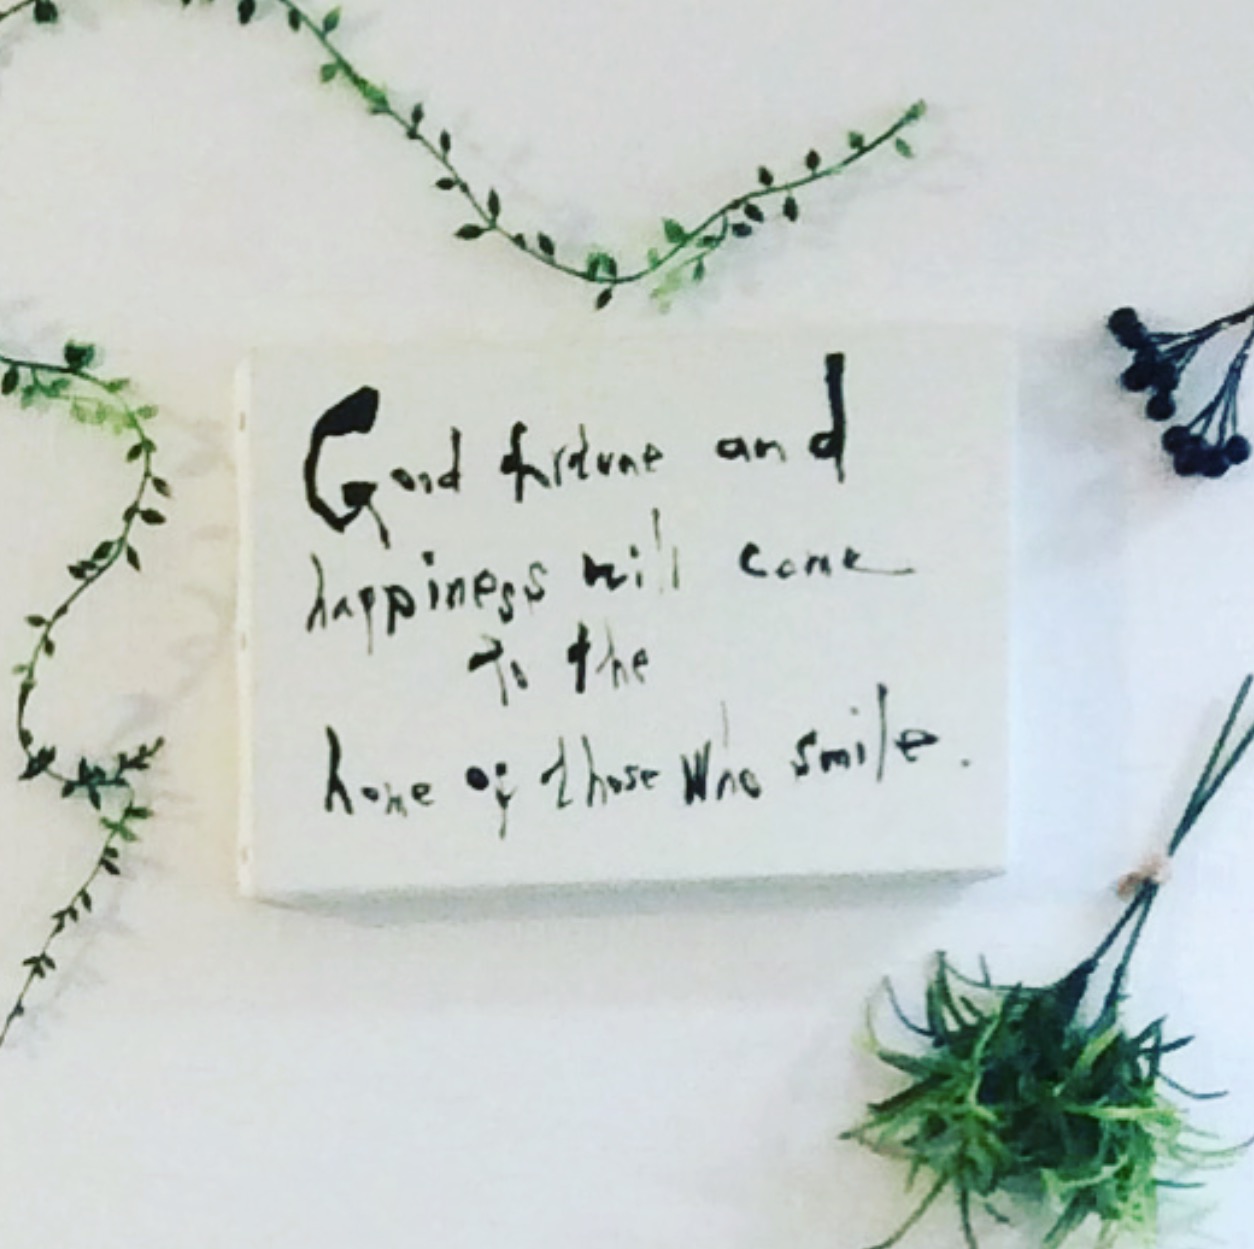 Good fortune and
happiness will come
to the
home of those who smile.